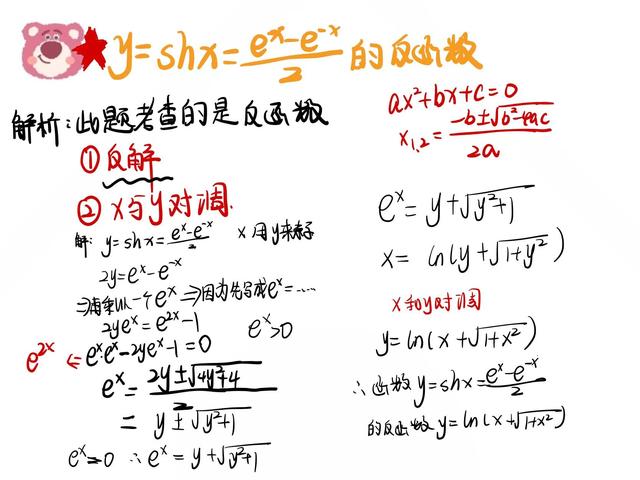 ★y=shx=\frac{e^x-e^{-x}}{2}的反函数
解析:此题考查的是反函数
①反解
②x与y对调.
解: y=shx=\frac{e^x-e^{-x}}{2} x用y来表示
2y=e^x-e^{-x}
⇒两乘以一个e^x⇒因为先写成e^x=……
2ye^x=e^{2x}-1 e^x>0
e^{2x} ⇐e^xe^x-2ye^x-1=0
e^x=\frac{2y±\sqrt{4y^2+4}}{2}
=y±\sqrt{y^2+1}
e^x>0 ∴e^x=y+\sqrt{y^2+1}
ax^2+bx+c=0
x_{1,2}=\frac{-b±\sqrt{b^2-4ac}}{2a}
e^x=y+\sqrt{y^2+1}
x=ln(y+\sqrt{1+y^2})
x和y对调
y=ln(x+\sqrt{1+x^2})
∴函数y=shx=\frac{e^x-e^{-x}}{2}
的反函数y=ln(x+\sqrt{1+x^2})